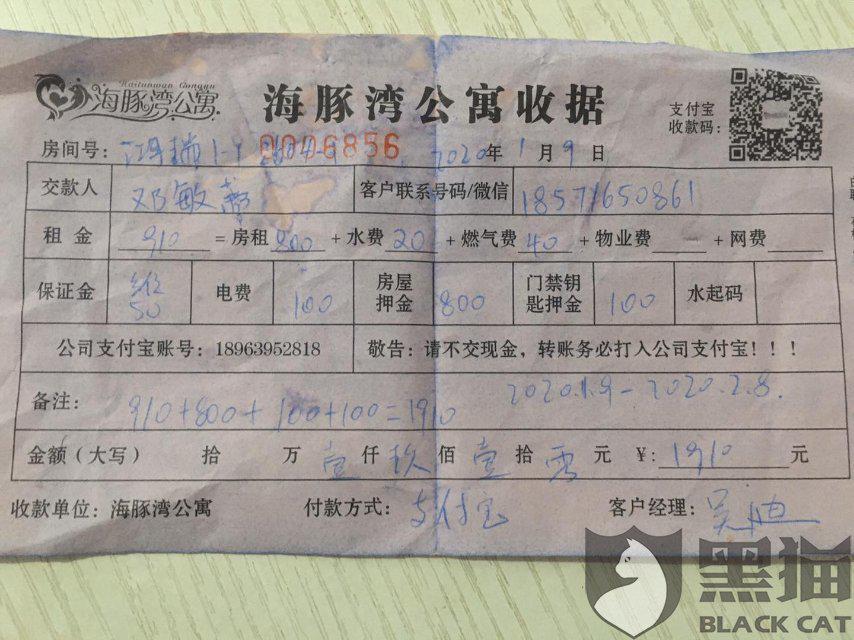 Haitunwan Gongyu
海豚湾公寓 海豚湾公寓收据 支付宝收款码:
房间号: 1-1 0046856 2020年1月9日
交款人 邓敏 客户联系号码/微信 18571650861
租金 910 =房租 800 +水费 20 +燃气费 40 +物业费 +网费
保证金 50 电费 100 房屋押金 800 门禁钥匙押金 100 水起码
公司支付宝账号: 18963952818 敬告: 请不交现金,转账务必打入公司支付宝!!!
备注: 910+800+100+100=1910 2020.1.9-2020.2.8.
金额(大写) 拾 万 壹 仟 玖 佰 壹 拾 零 元 ¥: 1910 元
收款单位: 海豚湾公寓 付款方式: 支付宝 客户经理: 吴迪
黑猫
BLACK CAT